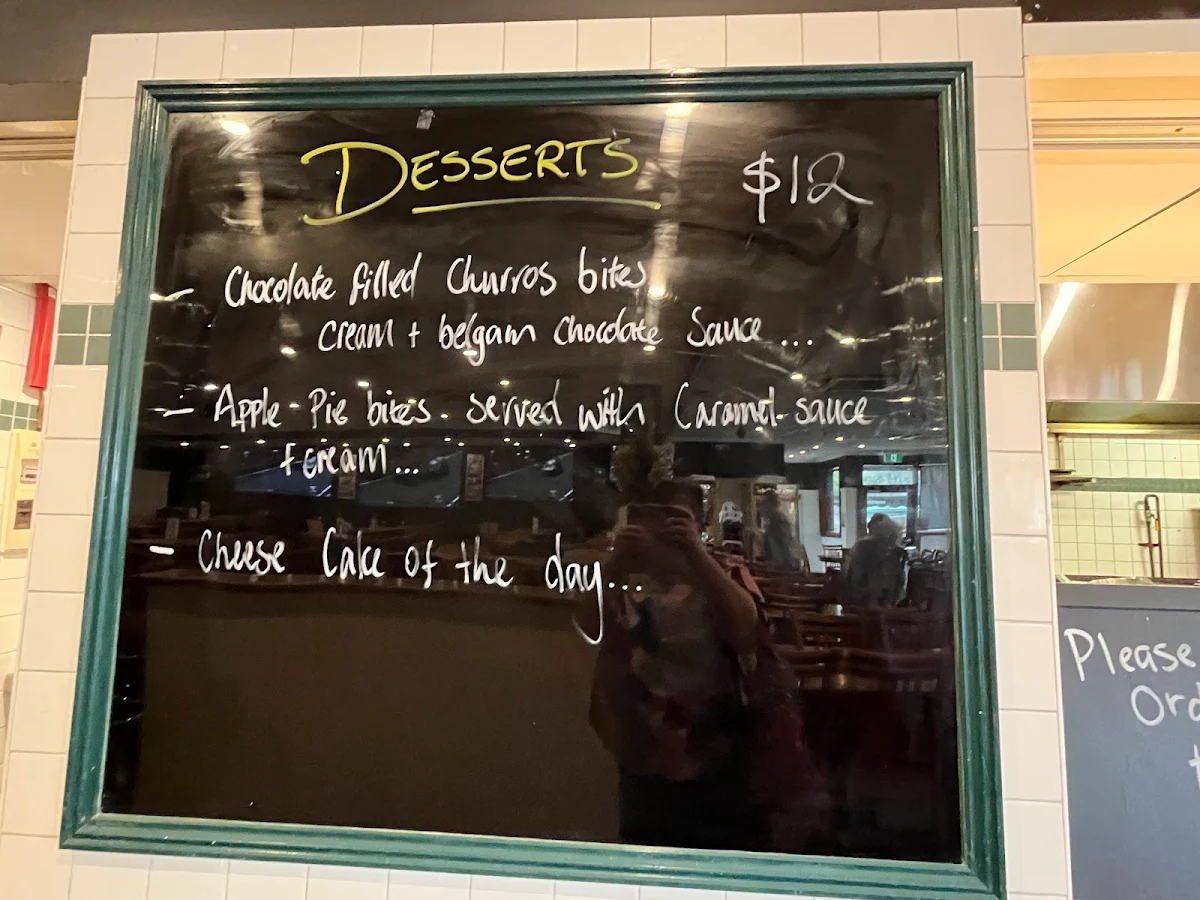 DESSERTS $12
- Chocolate filled Churros bites
cream + belgam chocolate Sauce ...
- Apple-Pie bites. served with Caramel-sauce
+ cream...
- Cheese Cake of the day...
Please
Ord
t